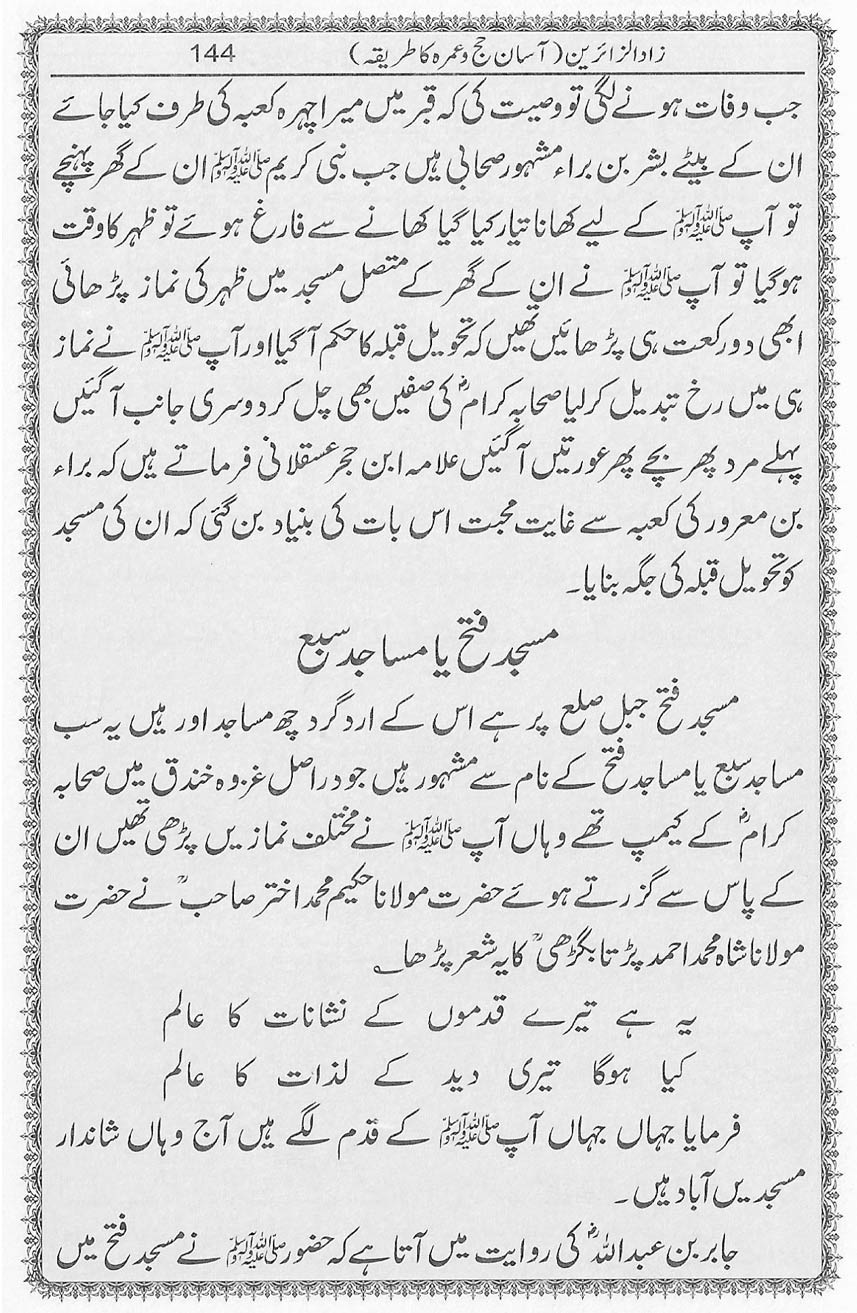 زاد الزائرین (آسان حج وعمرہ کا طریقہ) 144
جب وفات ہونے لگی تو وصیت کی کہ قبر میں میرا چہرہ کعبہ کی طرف کیا جائے
ان کے بیٹے بشر بن براء مشہور صحابی ہیں جب نبی کریم ﷺ ان کے گھر پہنچے
تو آپ ﷺ کے لیے کھانا تیار کیا گیا کھانے سے فارغ ہوئے تو ظہر کا وقت
ہوگیا تو آپ ﷺ نے ان کے گھر کے متصل مسجد میں ظہر کی نماز پڑھائی
ابھی دو رکعت ہی پڑھائیں تھیں کہ تحویل قبلہ کا حکم آگیا اور آپ ﷺ نے نماز
ہی میں رخ تبدیل کرلیا صحابہ کرامؓ کی صفیں بھی چل کر دوسری جانب آگئیں
پہلے مرد پھر بچے پھر عورتیں آگئیں علامہ ابن حجر عسقلانی فرماتے ہیں کہ براء
بن معرور کی کعبہ سے غایت محبت اس بات کی بنیاد بن گئی کہ ان کی مسجد
کو تحویل قبلہ کی جگہ بنایا۔
مسجد فتح یا مساجد سبع
مسجد فتح جبل صلع پر ہے اس کے ارد گرد چھ مساجد اور ہیں یہ سب
مساجد سبع یا مساجد فتح کے نام سے مشہور ہیں جو دراصل غزوہ خندق میں صحابہ
کرامؓ کے کیمپ تھے وہاں آپ ﷺ نے مختلف نمازیں پڑھی تھیں ان
کے پاس سے گزرتے ہوئے حضرت مولانا حکیم محمد اختر صاحبؒ نے حضرت
مولانا شاہ محمد احمد پڑتا بگڑھیؒ کا یہ شعر پڑھا؎
یہ ہے تیرے قدموں کے نشانات کا عالم
کیا ہوگا تیری دید کے لذات کا عالم
فرمایا جہاں جہاں آپ ﷺ کے قدم لگے ہیں آج وہاں شاندار
مسجدیں آباد ہیں۔
جابر بن عبداللہؓ کی روایت میں آتا ہے کہ حضور ﷺ نے مسجد فتح میں